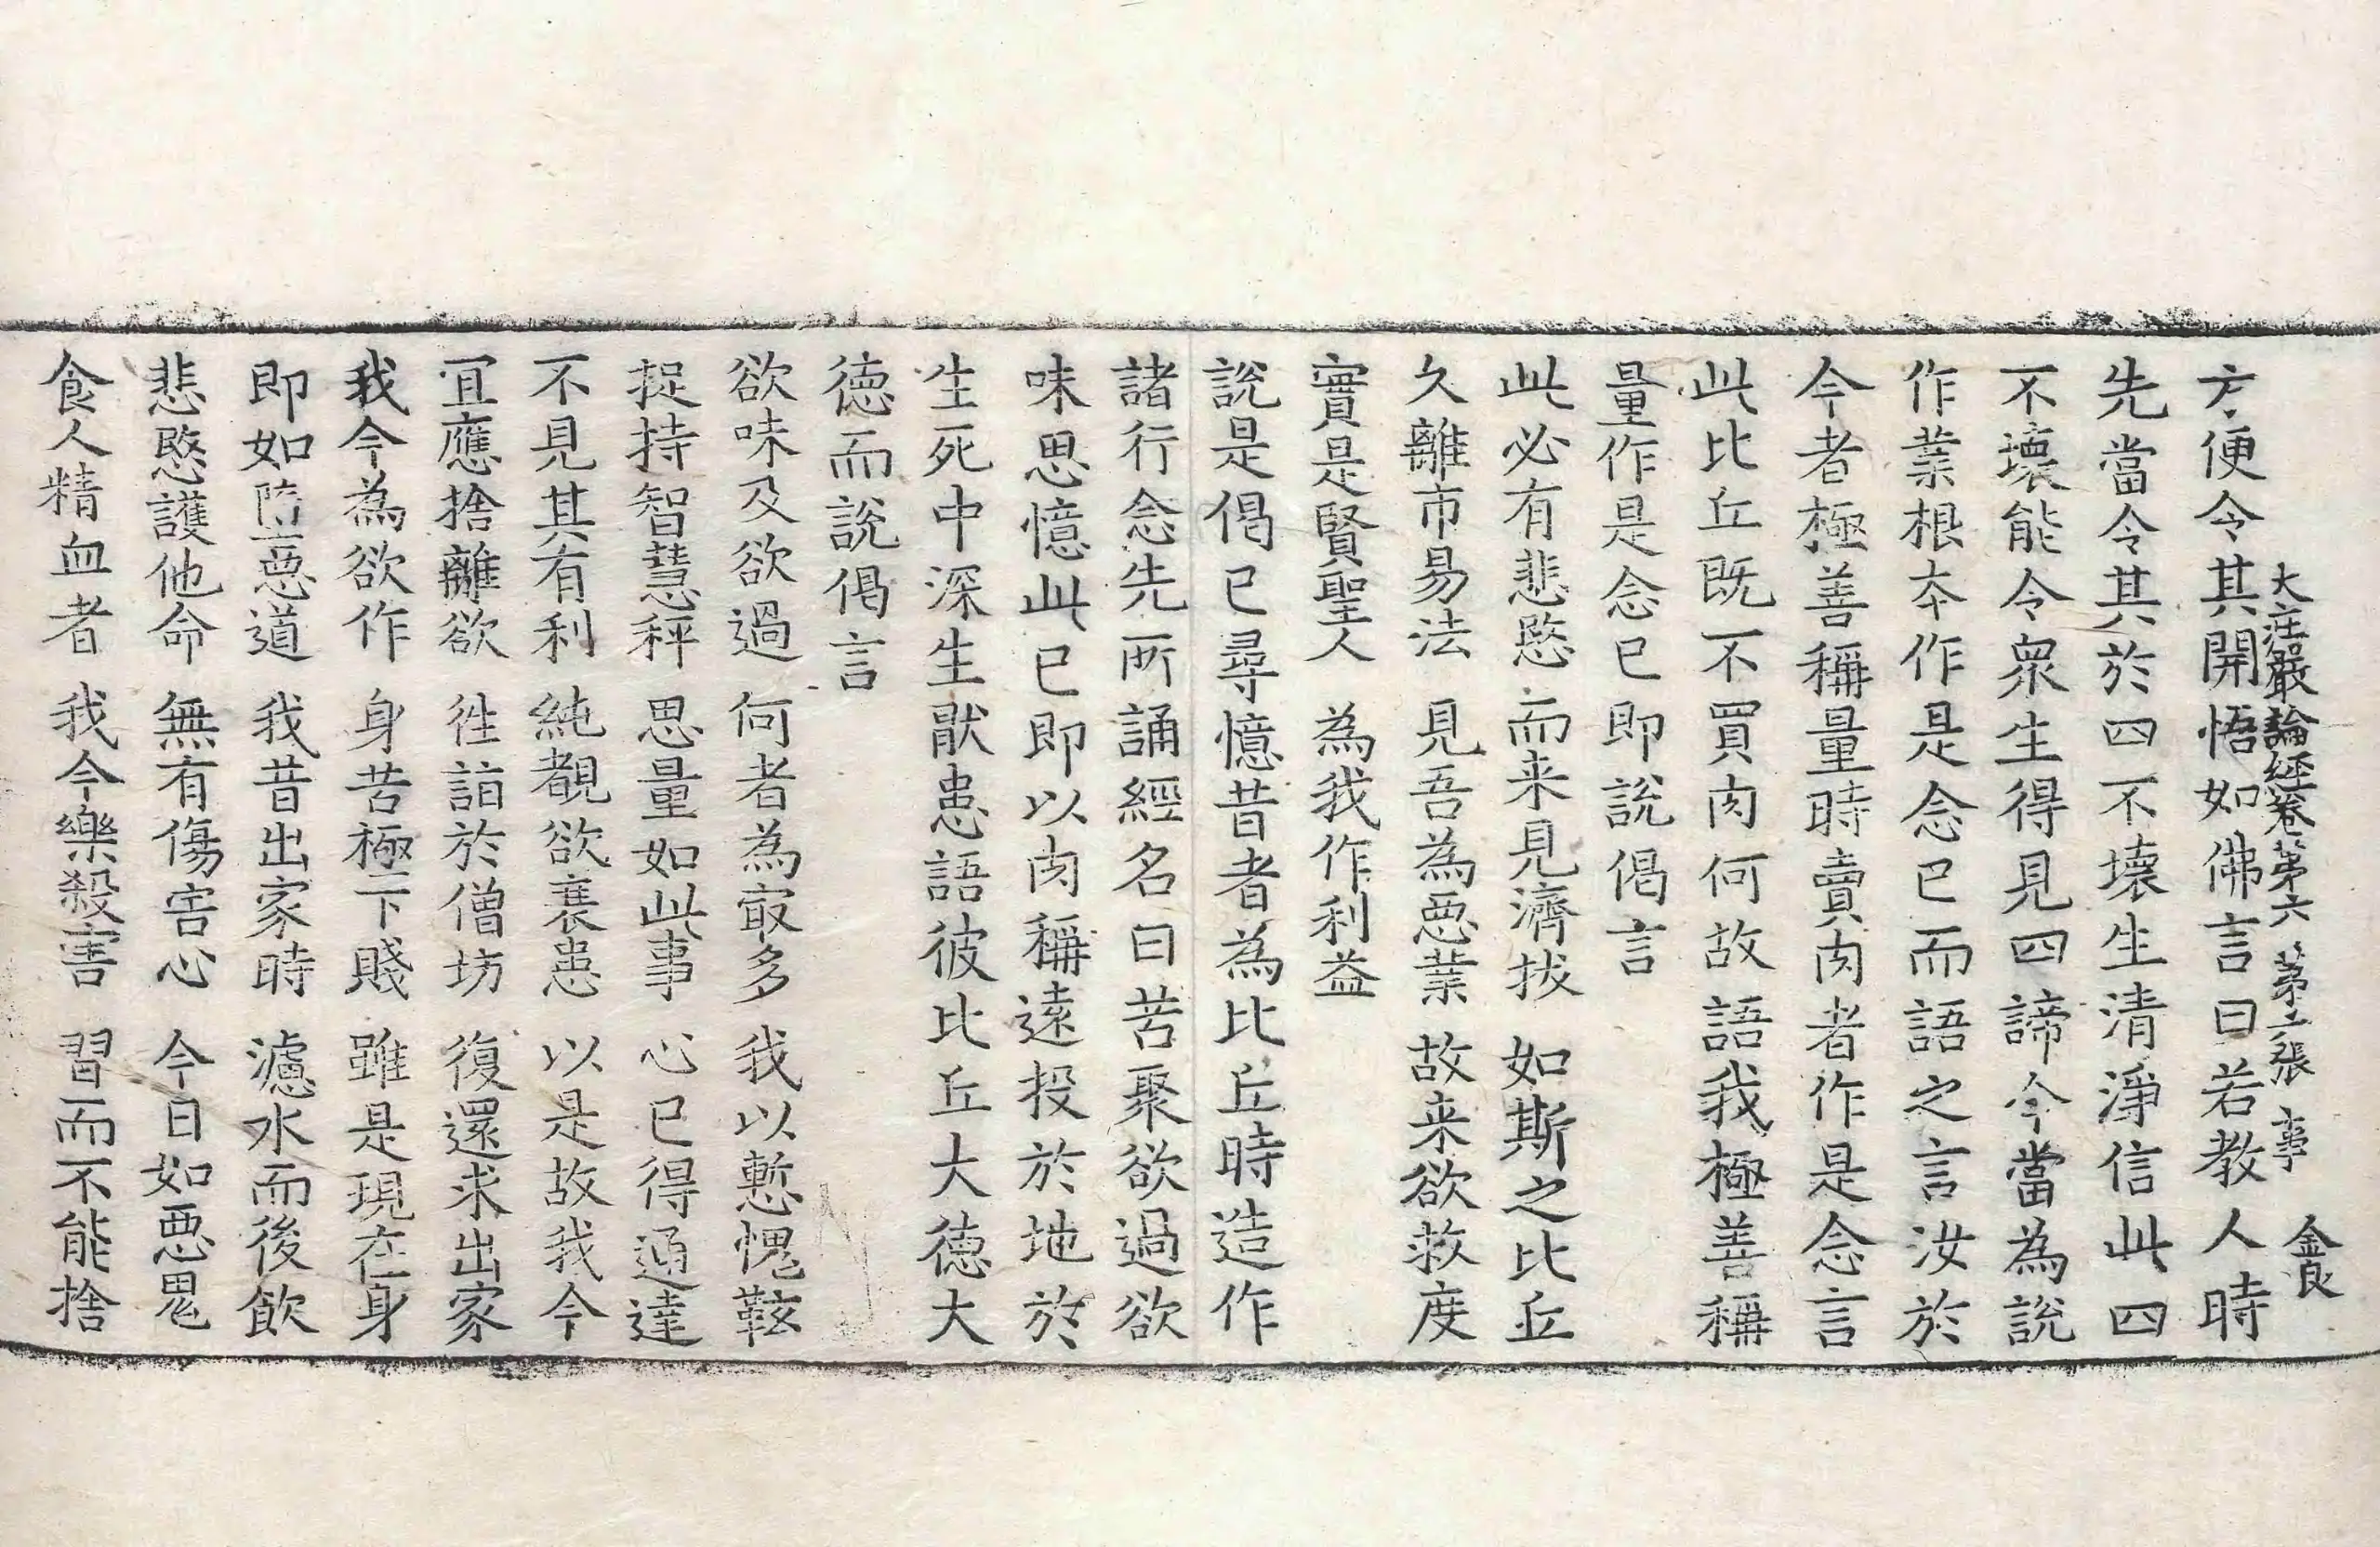 大莊嚴論經卷第六 第二張 事 食
方便令其開悟如佛言曰若教人時
先當令其於四不壞生清淨信此四
不壞能令衆生得見四諦今當為說
作業根本作是念已而語之言汝於
今者極善稱量時賣肉者作是念言
此比丘既不買肉何故語我極善稱
量作是念已即說偈言
此必有悲愍 而来見濟拔 如斯之比丘
久離市易法 見吾為惡業 故来欲救度
實是賢聖人 為我作利益
說是偈已尋憶昔者為比丘時造作
諸行念先所誦經名曰苦聚欲過欲
味思憶此已即以肉稱遠投於地於
生死中深生猒患語彼比丘大德大
德而說偈言
欲味及欲過 何者為冣多 我以慙愧䩙
捉持智慧秤 思量如此事 心已得通達
不見其有利 純覩欲衰患 以是故我今
宜應捨離欲 徃詣於僧坊 復還求出家
我今為欲作 身苦極下賤 雖是現在身
即如墮惡道 我昔出家時 濾水而後飲
悲愍護他命 無有傷害心 今日如惡鬼
食人精血者 我今樂殺害 習而不能捨